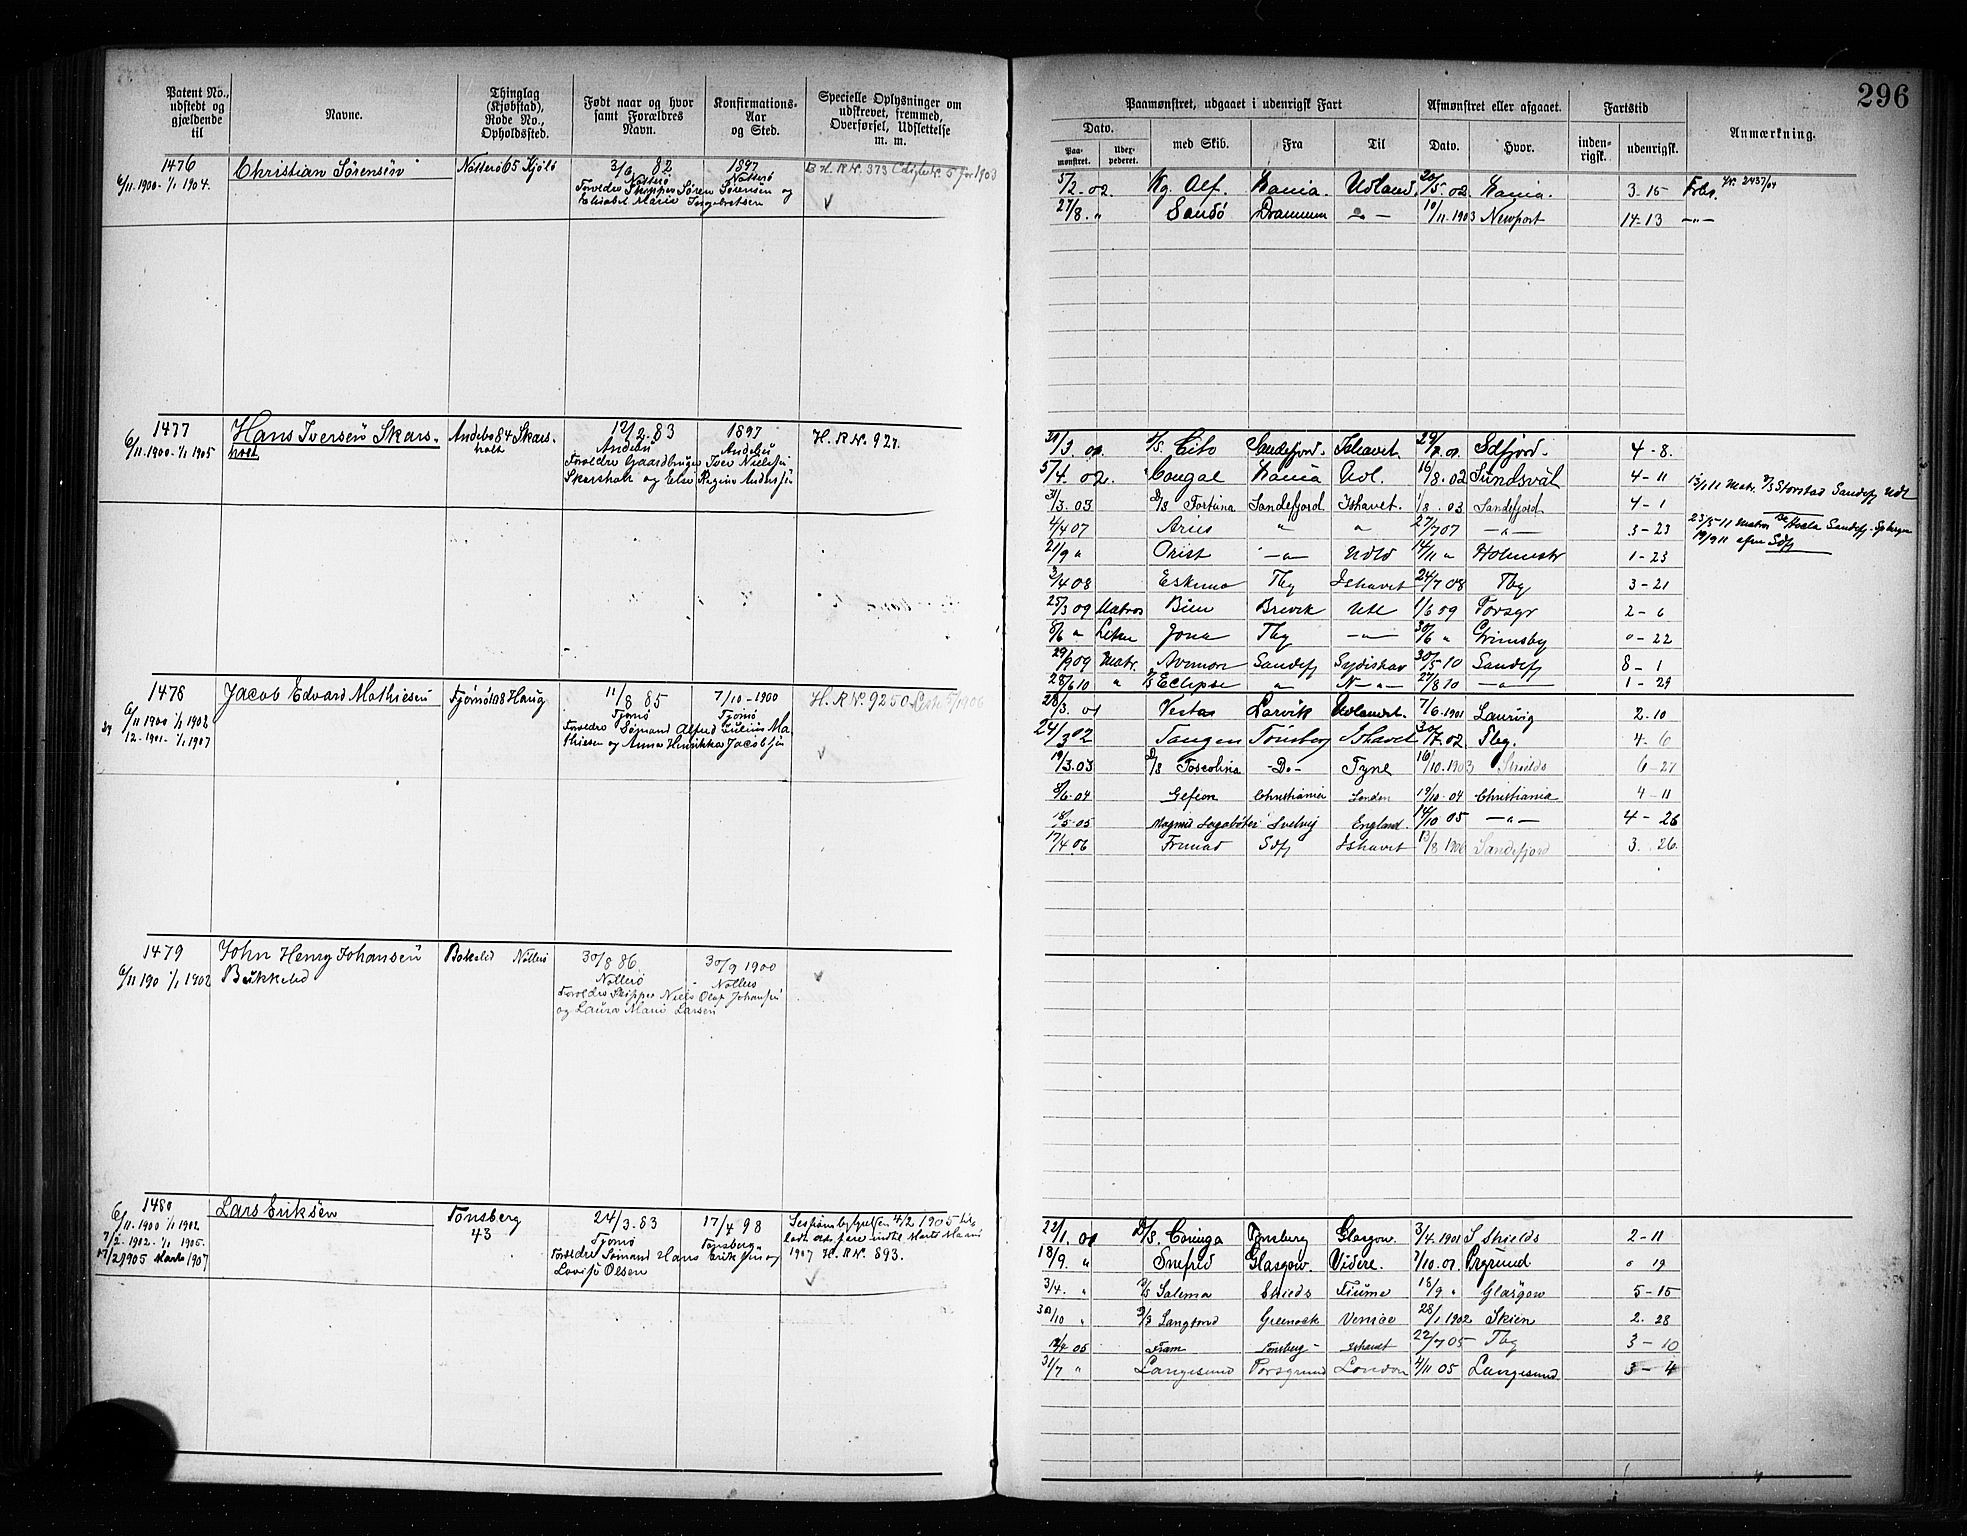 296
Patent No., udstedt og gjældende til
Navne.
Thinglag (Kjøbstad), Rode No., Opholdssted.
Født naar og hvor samt Forældres Navn.
Konfirmations-Aar og Sted.
Specielle Oplysninger om udstrevet, fremmed, Overførsel, Udslettelse m. m.
Paamønstret, udgaaet i udenrigsk Fart
Afmønstret eller afgaaet.
Fartstid
Anmærkning.
Dato.
med Skib.
Fra
Til
Dato.
Hvor.
inden-rigsk.
udenrigsk.
Paa-mønstret.
1476
6/11.1900-1/1 1904.
Christian Sørensen
Nøtterö 65 Kjölö
3/6 82
Nøtterö
Forældre Skipper Søren Sørensen og
Elisabet Marie Ingebretsen
1897
Nøtterö
5/2.02 Kg. Alf. Udland. 20/5.02 3.15 Frbg. 2437/04
27/8. " Sandö Drammen 10/11.1903 Newport 14-13 —"—
1477
6/11.1900-1/1 1905
Hans Iversen Skars-
holt
Andebo 84 Skars-
holt
12/2.83
Andebu
Forældre Gaardbruger Iver Nielsen
Skarsholt og Else Regine Andersen
1897
Andebu
H.R.Nr. 927.
Cito Sandefjord. Ishavet. Sdfjord. 4-8.
5/4.02. Udl. 16/8.02 Sundsvál 4-11
31/3.03 D/S Fortuna Sandefjord Ishavet. 1/8.03 Sandefjord 4-1
4/4 07 Aries " " 27/7 07 —"— 3-23
21/9 " Orist —"— Udld 14/11 " Holmestr 1-23
3/4 08 Eskimo Tbg Ishavet 24/7 08 Tbg 3-21
25/3 09 Matros Bien Brevik Utl 1/6 09 Porsgr 2-6
8/6 " Letm Jona Tbg —"— 30/6 " Grimsby 0-22
29/9 09 Matr. Avenon Sandefj Sydishav 30/5 10 Sandefj 8-1
28/6 10 " Eclipse " N—"— 27/8 10 —"— 1-29
13/1 11 Matr. Storstad Sandefj Udl
23/5-11 Matros Hvala Sandefj. Spbergen
19/9 11 afm Sdfj
1478
6/11 1900 1/1 1902
12.1901-1/1 1907
Jacob Edvard Mathiesen
Tjømö 108 Haug
11/8 85
Tjømö
Forældre Sømand Alfred Julius Ma
thiesen og Anna Henrikka Jacobsen
7/10-1900
Tjømö
H.R.Nr. 9250 Liste 5/1906
28/3.01 Vesta Larvik Udlandet. 7/6.1901 Laurvig 2.10
24/3 02 Tangen Tønsberg Ishavet 30/7.02 Tbg. 4-6
19/3.03 D/S Toscolina -Do- Tyne 16/10.1903 Shields 6-27
8/6.04 Gefion Christiania London 19/10.04 Christiania 4-11
18/5.05 Magnus Lagabøter Svelvig England. 14/10 05 —"— 4-26
17/4 06 Sdfj Ishavet 13/8 1906 Sandefjord 3.26
1479
6/11 190 1/1 1902
John Henry Johansen
Bukkelid
Bokelid Nøtterö
30/8 86
Nøtterö
Forældre Skipper Niels Olaf Johansen
og Laura Marie Larsen
30/9 1900
Nøtterö
1480
6/11.1900 1/1 1902.
7/2-1902.-1/1 1905.
17/2 1905 Marts 1907
Lars Eriksen
Tønsberg
43
24/3.83
Tjømö
Forældre Sømand Hans Eriksen og
Lovise Olsen
17/4 98
Tønsberg
4/2 1905
indtil Marts Maaned
1907 H.R.Nr. 893.
22/1.01 D/S. Coringa Tønsberg Glasgow 3/4.1901 S Shields 2-11
18/9. " Snefrid Glasgow Videre. 7/10.01 Prgrund " 19
3/4. " D/S Salerna Shields Fiume 18/9 " Glasgow 5-15
30/10 " D/S Langsund Greenock 28/1 1902 Skien 2.28
12/4 05 Fram Tønsberg Ishavet 22/7 05 Tbg 3-10
31/7 " Langesund Porsgrund London 4/11 05 Langesund 3-4